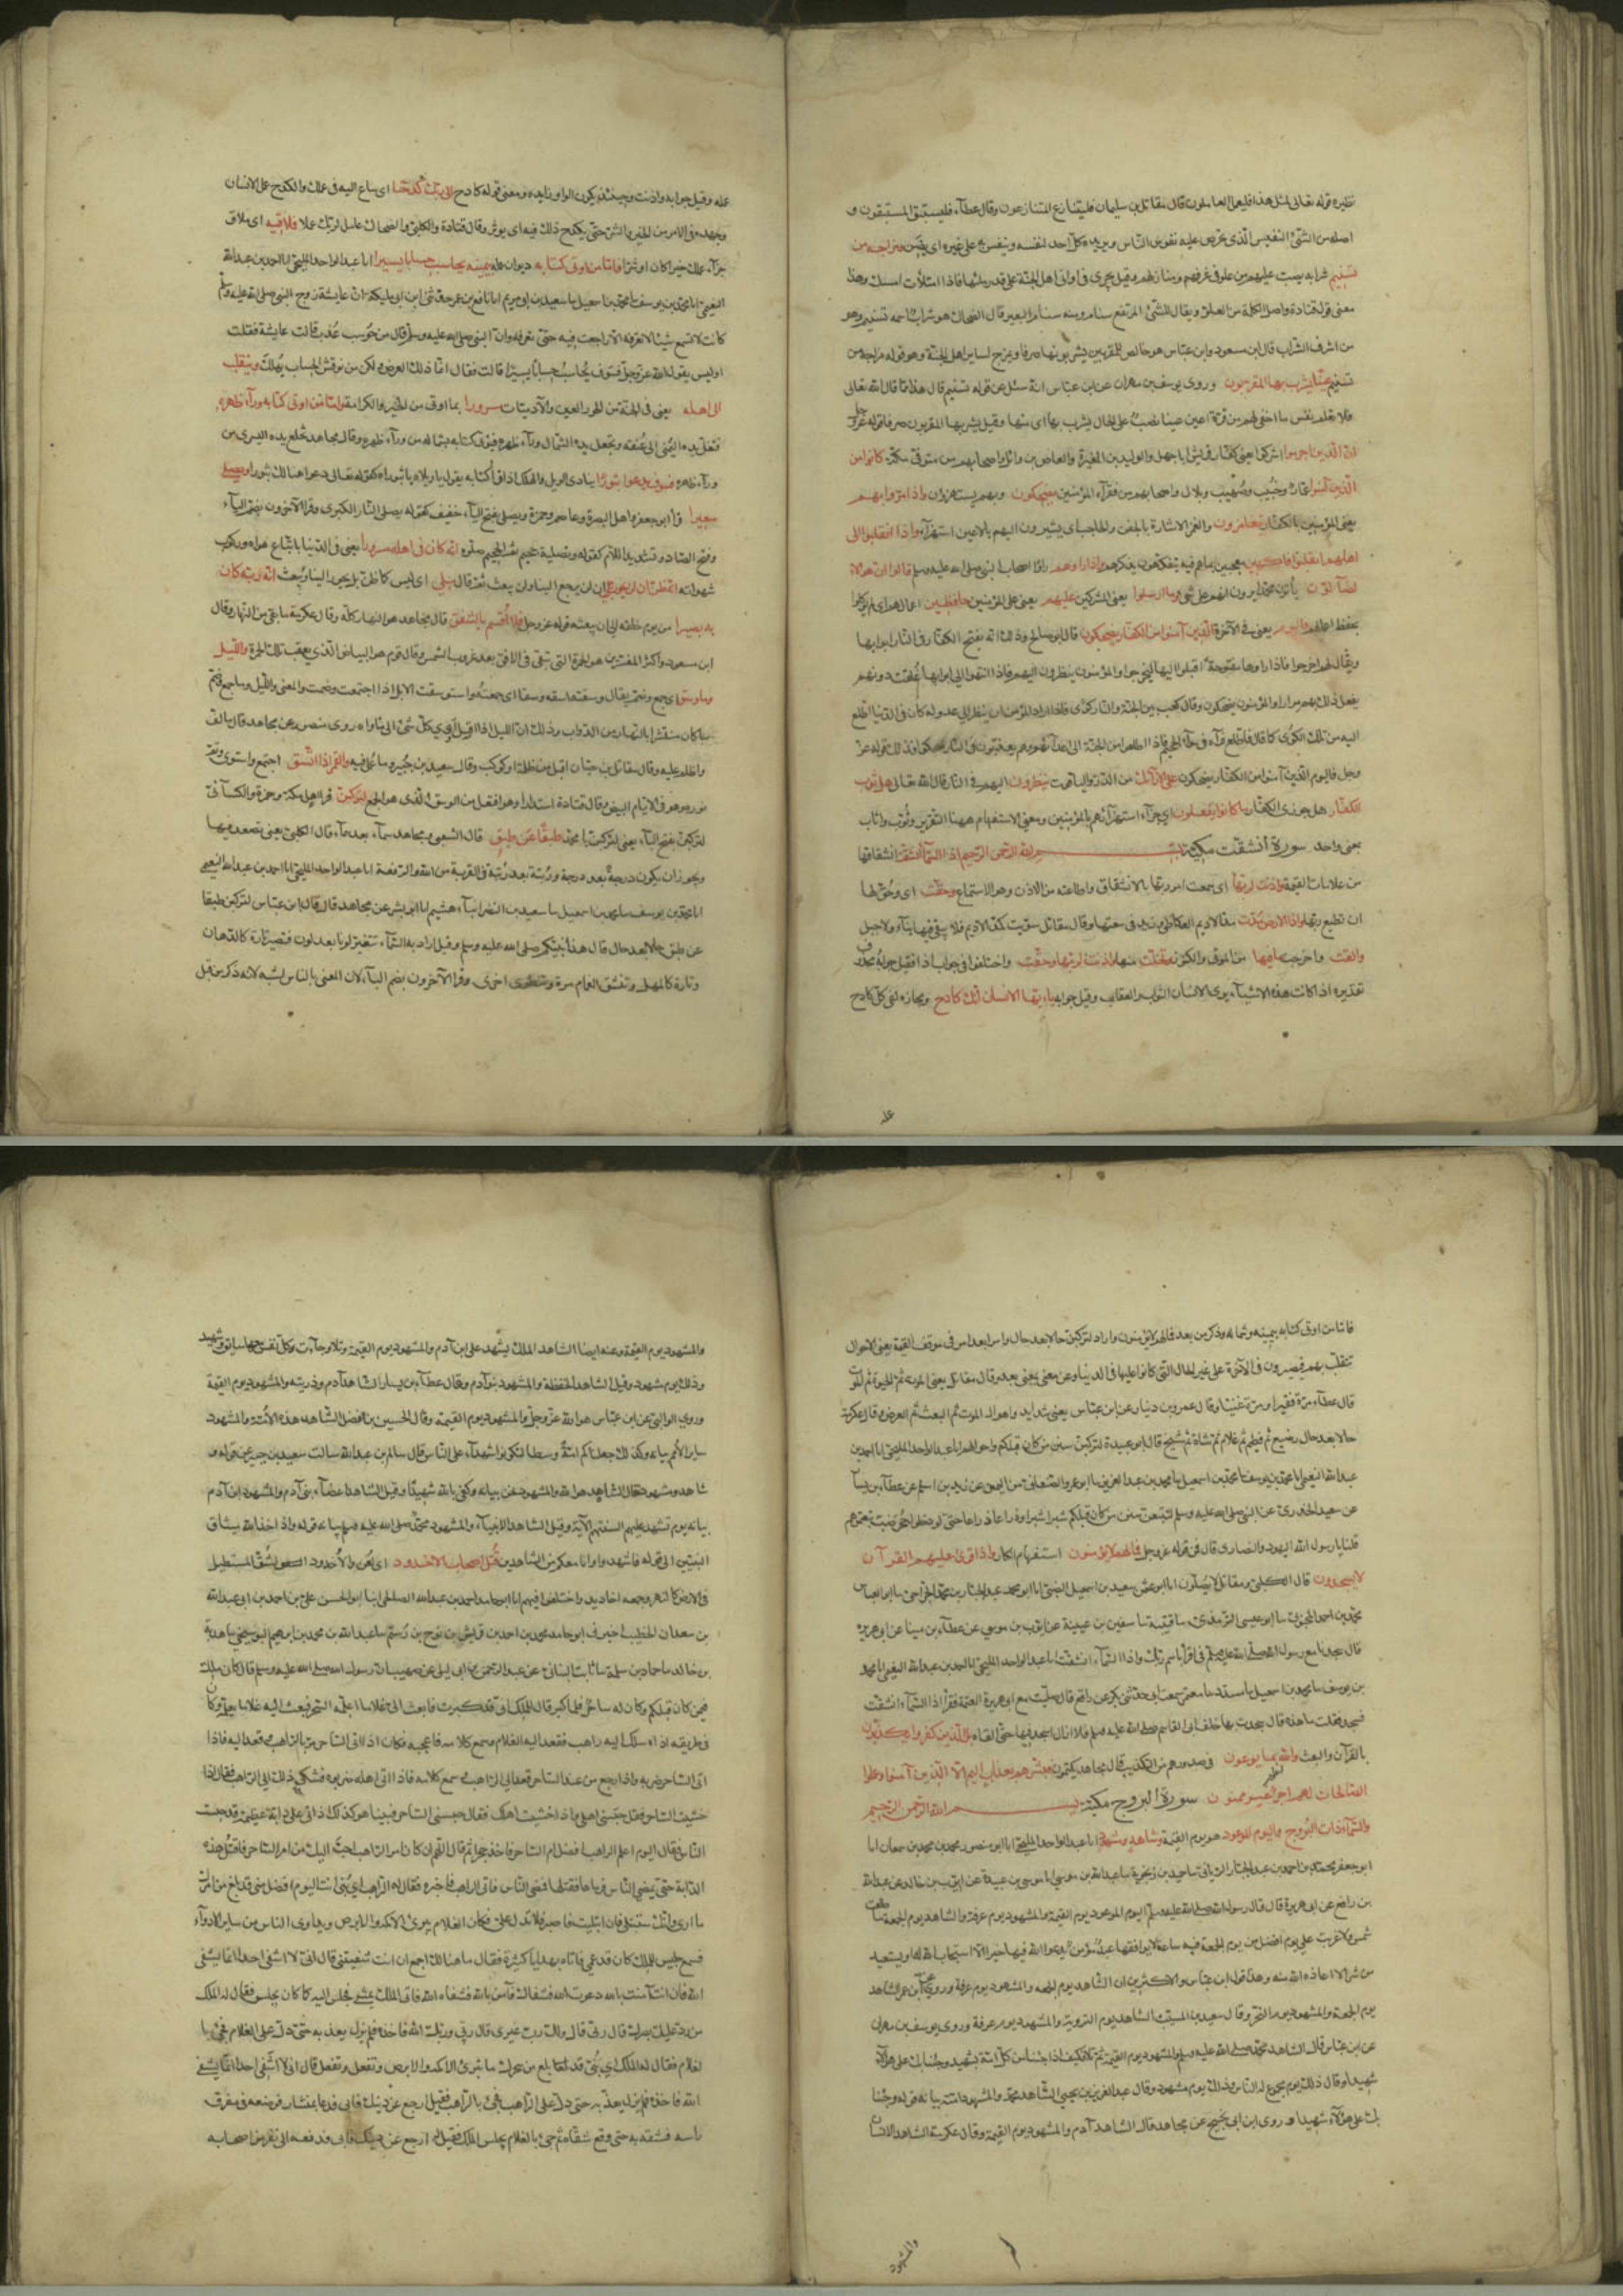 نظيره قوله تعالى لمثل هذا فليعمل العاملون قال مقاتل بن سليمان فليتنازع المتنازعون وقال عطاء فليستبق المستبقون و
اصله من الشئ النفيس الذى تحرص عليه نفوس الناس ويريده كل احد لنفسه وينفس به على غيره اى يضن ومزاجه من
تسنيم شراب يصب عليهم من علو فى غرفهم ومنازلهم وقيل يجرى فى اوانى اهل الجنة على قدر ملئها فاذا امتلأت امسك وهذا
معنى قول قتادة واصل الكلمة من العلو ويقال للشئ المرتفع سنام ومنه سنام البعير قال الضحاك هو شراب اسمه تسنيم وهو
من اشرف الشراب قال ابن مسعود وابن عباس هو خالص للمقربين يشربونها صرفا ويمزج لساير اهل الجنة وهو قوله مزاجه من
تسنيم عينا يشرب بها المقربون وروى يوسف بن مهران عن ابن عباس انه سئل عن قوله تسنيم قال هذا مما قال الله تعالى
فلا تعلم نفس ما اخفى لهم من قرة اعين عينا نصب على الحال يشرب بها اى منها وقيل يشربها المقربون صرفا قوله عز وجل
ان الذين اجرموا اشركوا يعنى كفار قريش ابا جهل والوليد بن المغيرة والعاص بن وائل واصحابهم من مترفى مكة كانوا من
الذين آمنوا عمار وخبيب وصهيب وبلال واصحابهم من فقراء المؤمنين يضحكون وبهم يستهزؤن واذا مروا بهم
يعنى المؤمنين بالكفار يتغامزون والغمز الاشارة بالجفن والحاجب اى يشيرون اليهم بالاعين استهزاء واذا انقلبوا الى
اهلهم انقلبوا فاكهين معجبين بما هم فيه يتفكهون بذكرهم واذا راوهم راوا اصحاب النبى صلى الله عليه وسلم قالوا ان هؤلاء
لضالون يأتون محمدا يرون انهم على شئ وما ارسلوا يعنى المشركين عليهم يعنى على المؤمنين حافظين اعمالهم اى لم يوكلوا
بحفظ اعمالهم فاليوم يعنى فى الآخرة الذين آمنوا من الكفار يضحكون قال ابو صالح وذلك انه يفتح للكفار فى النار ابوابها
ويقال لهم اخرجوا فاذا راوها مفتوحة اقبلوا اليها ليخرجوا والمؤمنون ينظرون اليهم فاذا انتهوا الى ابوابها غلقت دونهم
يفعل ذلك بهم مرارا والمؤمنون يضحكون وقال كعب بين الجنة والنار كوى فاذا اراد المؤمن ان ينظر الى عدو له كان فى الدنيا اطلع
اليه من تلك الكوى كما قال فاطلع فرآه فى سواء الجحيم فاذا اطلعوا من الجنة الى اعدائهم وهم يعذبون فى النار ضحكوا فذلك قوله عز
وجل فاليوم الذين آمنوا من الكفار يضحكون على الارائك من الدر والياقوت ينظرون اليهم فى النار قال الله تعالى هل ثوب
الكفار هل جوزى الكفار ما كانوا يفعلون اى جزاء استهزائهم بالمؤمنين ومعنى الاستفهام ههنا التقرير وثوب واثاب
بمعنى واحد سورة انشقت مكية بسم الله الرحمن الرحيم اذا السماء انشقت انشقاقها
من علامات القيمة واذنت لربها اى سمعت امر ربها بالانشقاق واطاعته من الاذن وهو الاستماع وحقت اى وحق لها
ان تطيع ربها واذا الارض مدت مد الاديم العكاظى وزيد فى سعتها وقال مقاتل سويت كمد الاديم فلا يبقى فيها بناء ولا جبل
والقت واخرجت ما فيها من الموتى والكنوز وتخلت منها واذنت لربها وحقت واختلفوا فى جواب اذا فقيل جوابه محذوف
تقديره اذا كانت هذه الاشياء يرى الانسان الثواب والعقاب وقيل جوابه يا ايها الانسان انك كادح ومجازه لقى كل كادح
عله
عله وقيل جوابه واذنت وحينئذ يكون الواو زايدة ومعنى قوله كادح الى ربك كدحا اى ساع اليه فى عملك والكدح عمل الانسان
وجهده فى الامر من الخير والشر حتى يكدح ذلك فيه اى يؤثر وقال قتادة والكلبى والضحاك عامل لربك عملا فملاقيه اى ملاق
جزاء عملك خيرا كان او شرا فاما من اوتى كتابه ديوان عمله بيمينه يحاسب حسابا يسيرا انا عبد الواحد المليحى انا احمد بن عبد الله
النعيمى انا محمد بن يوسف نا محمد بن اسمعيل نا سعيد بن ابى مريم انا نافع بن عمر حدثنى ابن ابى مليكة ان عايشة زوج النبى صلى الله عليه وسلم
كانت لا تسمع شيئا لا تعرفه الا راجعت فيه حتى تعرفه وان النبى صلى الله عليه وسلم قال من حوسب عذب قالت عايشة فقلت
اوليس يقول الله عز وجل فسوف يحاسب حسابا يسيرا قالت فقال انما ذلك العرض ولكن من نوقش الحساب يهلك وينقلب
الى اهله يعنى فى الجنة من الحور العين والآدميات مسرورا بما اوتى من الخير والكرامة واما من اوتى كتابه وراء ظهره
فتغل يده اليمنى الى عنقه وتجعل يده الشمال وراء ظهره فيؤتى كتابه بشماله من وراء ظهره وقال مجاهد تخلع يده اليسرى من
وراء ظهره فسوف يدعوا ثبورا ينادى الويل والهلاك اذا قرأ كتابه يقول يا ويلاه يا ثبوراه كقوله تعالى دعوا هنالك ثبورا ويصلى
سعيرا قرأ ابو جعفر واهل البصرة وعاصم وحمزة ويصلى بفتح الياء خفيف كقوله يصلى النار الكبرى وقرا الآخرون بضم الياء
وفتح الصاد وتشديد اللام كقوله وتصلية جحيم ثم الجحيم صلوه انه كان فى اهله مسرورا يعنى فى الدنيا باتباع هواه وركوب
شهواته انه ظن ان لن يحور ان لن يرجع الينا ولن يبعث ثم قال بلى اى ليس كما ظن بل يحور الينا ويبعث ان ربه كان
به بصيرا من يوم خلقه الى ان يبعثه قوله عز وجل فلا اقسم بالشفق قال مجاهد هو النهار كله وقال عكرمة ما بقى من النهار وقال
ابن مسعود واكثر المفسرين هو الحمرة التى تبقى فى الافق بعد غروب الشمس وقال قوم هو البياض الذى يعقب تلك الحمرة والليل
وما وسق اى جمع وضم يقال وسقته اسقه وسقا اى جمعته واستوسقت الابل اذا اجتمعت وضمت والمعنى والليل وما جمع وضم
ما كان منتشرا بالنهار من الدواب وذلك ان الليل اذا اقبل اوى كل شئ الى مأواه روى منصور عن مجاهد قال ما لف
واظلم عليه وقال مقاتل بن حيان اقبل من ظلمة او كوكب وقال سعيد بن جبير وما عمل فيه والقمر اذا اتسق اجتمع واستوى وتم
نوره وهو فى الايام البيض وقال قتادة استدار وهو افتعل من الوسق الذى هو الجمع لتركبن قرا اهل مكة وحمزة والكسائى
لتركبن بفتح الباء يعنى لتركبن يا محمد طبقا عن طبق قال الشعبى ومجاهد سماء بعد سماء قال الكلبى يعنى تصعد فيها
ويجوز ان يكون درجة بعد درجة ورتبة بعد رتبة فى القربة من الله والرفعة انا عبد الواحد المليحى انا احمد بن عبد الله النعيمى
انا محمد بن يوسف نا محمد بن اسمعيل نا سعيد بن النضر انباء هشيم انا ابو بشر عن مجاهد قال قال ابن عباس لتركبن طبقا
عن طبق حالا بعد حال قال هذا نبيكم صلى الله عليه وسلم وقيل اراد به السماء تتغير لونا بعد لون فتصير تارة كالدهان
وتارة كالمهل وتنشق الغمام مرة وتطوى اخرى وقرا الآخرون بضم الباء لان المعنى بالناس اشبه لانه ذكر من قبل
فاما من اوتى كتابه بيمينه وشماله وذكر من بعد فما لهم لا يؤمنون واراد لتركبن حالا بعد حال وامرا بعد امر فى موقف القيمة يعنى الاحوال
تتقلب بهم فيصيرون فى الآخرة على غير الحال التى كانوا عليها فى الدنيا وعن بمعنى بعد وقال مقاتل يعنى الموت ثم الحيوة ثم الموت
قال عطاء مرة فقيرا ومرة غنيا وقال عمرو بن دينار عن ابن عباس يعنى شدايد واهوال الموت ثم البعث ثم العرض وقال عكرمة
حالا بعد حال رضيع ثم فطيم ثم غلام ثم شاب ثم شيخ قال ابو عبيدة لتركبن سنن من كان قبلكم واحوالهم انا عبد الواحد المليحى انا احمد بن
عبد الله النعيمى انا محمد بن يوسف نا محمد بن اسمعيل نا محمد بن عبد العزيز نا ابو عمر الصنعانى من اليمن عن زيد بن اسلم عن عطاء بن يسار
عن سعيد الخدرى عن النبى صلى الله عليه وسلم لتتبعن سنن من كان قبلكم شبرا شبرا وذراعا ذراعا حتى لو دخلوا جحر ضب تبعتموهم
قلنا يا رسول الله اليهود والنصارى قال فمن قوله عز وجل فما لهم لا يؤمنون استفهام انكار واذا قرئ عليهم القرآن
لا يسجدون قال الكلبى ومقاتل لا يصلون انا ابو عثمن سعيد بن اسمعيل الضبى انا ابو محمد عبد الجبار بن محمد الجراحى نا ابو العباس
محمد بن احمد المحبوبى نا ابو عيسى الترمذى نا قتيبة نا سفين بن عيينة عن ايوب بن موسى عن عطاء بن مينا عن ابى هريرة
قال سجدنا مع رسول الله صلى الله عليه وسلم فى اقرأ باسم ربك واذا السماء انشقت انا عبد الواحد المليحى انا احمد بن عبد الله النعيمى انا محمد
بن يوسف نا محمد بن اسمعيل نا مسدد نا معتمر سمعت ابى حدثنى بكر عن رافع قال صليت مع ابى هريرة العتمة فقرأ اذا السماء انشقت
فسجد فقلت ما هذه قال سجدت بها خلف ابى القاسم صلى الله عليه وسلم فلا ازال اسجد فيها حتى القاه بل الذين كفروا يكذبون
بالقرآن والبعث والله اعلم بما يوعون فى صدورهم من التكذيب قال مجاهد يكتمون فبشرهم بعذاب اليم الا الذين آمنوا وعملوا
الصالحات لهم اجر غير ممنون سورة البروج مكية بسم الله الرحمن الرحيم
والسماء ذات البروج واليوم الموعود هو يوم القيمة وشاهد ومشهود انا عبد الواحد المليحى انا ابو منصور محمد بن محمد بن سمعان انا
ابو جعفر محمد بن احمد بن عبد الجبار الريانى نا حميد بن زنجوية نا عبد الله بن موسى انا موسى بن عبيدة عن ايوب بن خالد عن عبد الله
بن رافع عن ابى هريرة قال قال رسول الله صلى الله عليه وسلم اليوم الموعود يوم القيمة والمشهود يوم عرفة والشاهد يوم الجمعة ما طلعت
شمس ولا غربت على يوم افضل من يوم الجمعة فيه ساعة لا يوافقها عبد مؤمن يدعوا الله فيها خيرا الا استجاب الله له او يستعيذ
من شر الا اعاذه الله منه وهذا قول ابن عباس والاكثرين ان الشاهد يوم الجمعة والمشهود يوم عرفة وروى عن ابن عمر الشاهد
يوم الجمعة والمشهود يوم النحر وقال سعيد بن المسيب الشاهد يوم التروية والمشهود يوم عرفة وروى يوسف بن مهران
عن ابن عباس قال الشاهد محمد صلى الله عليه وسلم والمشهود يوم القيمة ثم تلا فكيف اذا جئنا من كل امة بشهيد وجئنا بك على هؤلاء
شهيدا وقال ذلك يوم مجموع له الناس وذلك يوم مشهود وقال عبد العزيز بن يحيى الشاهد محمد والمشهود امته بيانه قوله وجئنا
بك على هؤلاء شهيدا وروى ابن ابى نجيح عن مجاهد قال الشاهد آدم والمشهود يوم القيمة وقال عكرمة الشاهد الانسان
والمشهود
والمشهود يوم القيمة وعنه ايضا الشاهد الملك يشهد على ابن آدم والمشهود يوم القيمة وتلا وجاءت كل نفس معها سايق وشهيد
وذلك يوم مشهود وقيل الشاهد الحفظة والمشهود بنو آدم وقال عطاء بن يسار الشاهد آدم وذريته والمشهود يوم القيمة
وروى الوالبى عن ابن عباس هو الله عز وجل والمشهود يوم القيمة وقال الحسين بن الفضل الشاهد هذه الامة والمشهود
ساير الامم بيانه وكذلك جعلناكم امة وسطا لتكونوا شهداء على الناس قال سالم بن عبد الله سالت سعيد بن جبير عن قوله و
شاهد ومشهود فقال الشاهد هو الله والمشهود نحن بيانه وكفى بالله شهيدا وقيل الشاهد اعضاء بنى آدم والمشهود ابن آدم
بيانه يوم تشهد عليهم السنتهم الآية وقيل الشاهد الانبياء والمشهود محمد صلى الله عليه وسلم بيانه قوله واذ اخذ الله ميثاق
النبيين الى قوله فاشهدوا وانا معكم من الشاهدين قتل اصحاب الاخدود اى لعن والاخدود الشق المستطيل
فى الارض كالنهر وجمعه اخاديد واختلفوا فيهم انا ابو حامد احمد بن عبد الله الصالحى انبا ابو الحسين على بن احمد بن ابى عبد الله
بن سعدان الخطيب اخبرنى ابو حامد محمد بن احمد بن قريش بن نوح بن رستم نا عبد الله بن محمد بن ابرهيم البوسنجى نا هدبة
بن خالد نا حماد بن سلمة نا ثابت البنانى عن عبد الرحمن بن ابى ليلى عن صهيب ان رسول الله صلى الله عليه وسلم قال كان ملك
فيمن كان قبلكم وكان له ساحر فلما كبر قال للملك انى قد كبرت فابعث الى غلاما اعلمه السحر فبعث اليه غلاما يعلمه وكان
فى طريقه اذا سلك اليه راهب فقعد اليه الغلام وسمع كلامه فاعجبه فكان اذا اتى الساحر مر بالراهب وقعد اليه فاذا
اتى الساحر ضربه واذا رجع من عند الساحر قعد الى الراهب وسمع كلامه فاذا اتى اهله ضربوه فشكى ذلك الى الراهب فقال اذا
خشيت الساحر فقل حبسنى اهلى واذا خشيت اهلك فقال حبسنى الساحر فبينا هو كذلك اذ اتى على دابة عظيمة قد حبست
الناس فقال اليوم اعلم الراهب افضل ام الساحر فاخذ حجرا ثم قال اللهم ان كان امر الراهب احب اليك من امر الساحر فاقتل هذه
الدابة حتى يمضى الناس فرماها فقتلها فمضى الناس فاتى الراهب فاخبره فقال له الراهب اى بنى انت اليوم افضل منى قد بلغ من امرك
ما ارى وانك ستبتلى فان ابتليت فاصبر فلا تدل على فكان الغلام يبرئ الاكمه والابرص ويداوى الناس من ساير الادواء
فسمع جليس للملك كان قد عمى فاتاه بهدايا كثيرة فقال ما هنا لك اجمع ان انت شفيتنى قال انى لا اشفى احدا انما يشفى
الله فان انت آمنت بالله دعوت الله فشفاك فآمن بالله فشفاه الله فاتى الملك يمشى فجلس اليه كما كان يجلس فقال له الملك
من رد عليك بصرك قال ربى قال ولك رب غيرى قال ربى وربك الله فاخذه فلم يزل يعذبه حتى دل على الغلام فجئ با
لغلام فقال له الملك اى بنى قد بلغ من سحرك ما تبرئ الاكمه والابرص وتفعل وتفعل قال انى لا اشفى احدا انما يشفى
الله فاخذه فلم يزل يعذبه حتى دل على الراهب فجئ بالراهب فقيل ارجع عن دينك فابى فدعا بمنشار فوضعه فى مفرق
راسه فشقه به حتى وقع شقاه ثم جئ بالغلام جليس الملك فقيل له ارجع عن دينك فابى فدفعه الى نفر من اصحابه